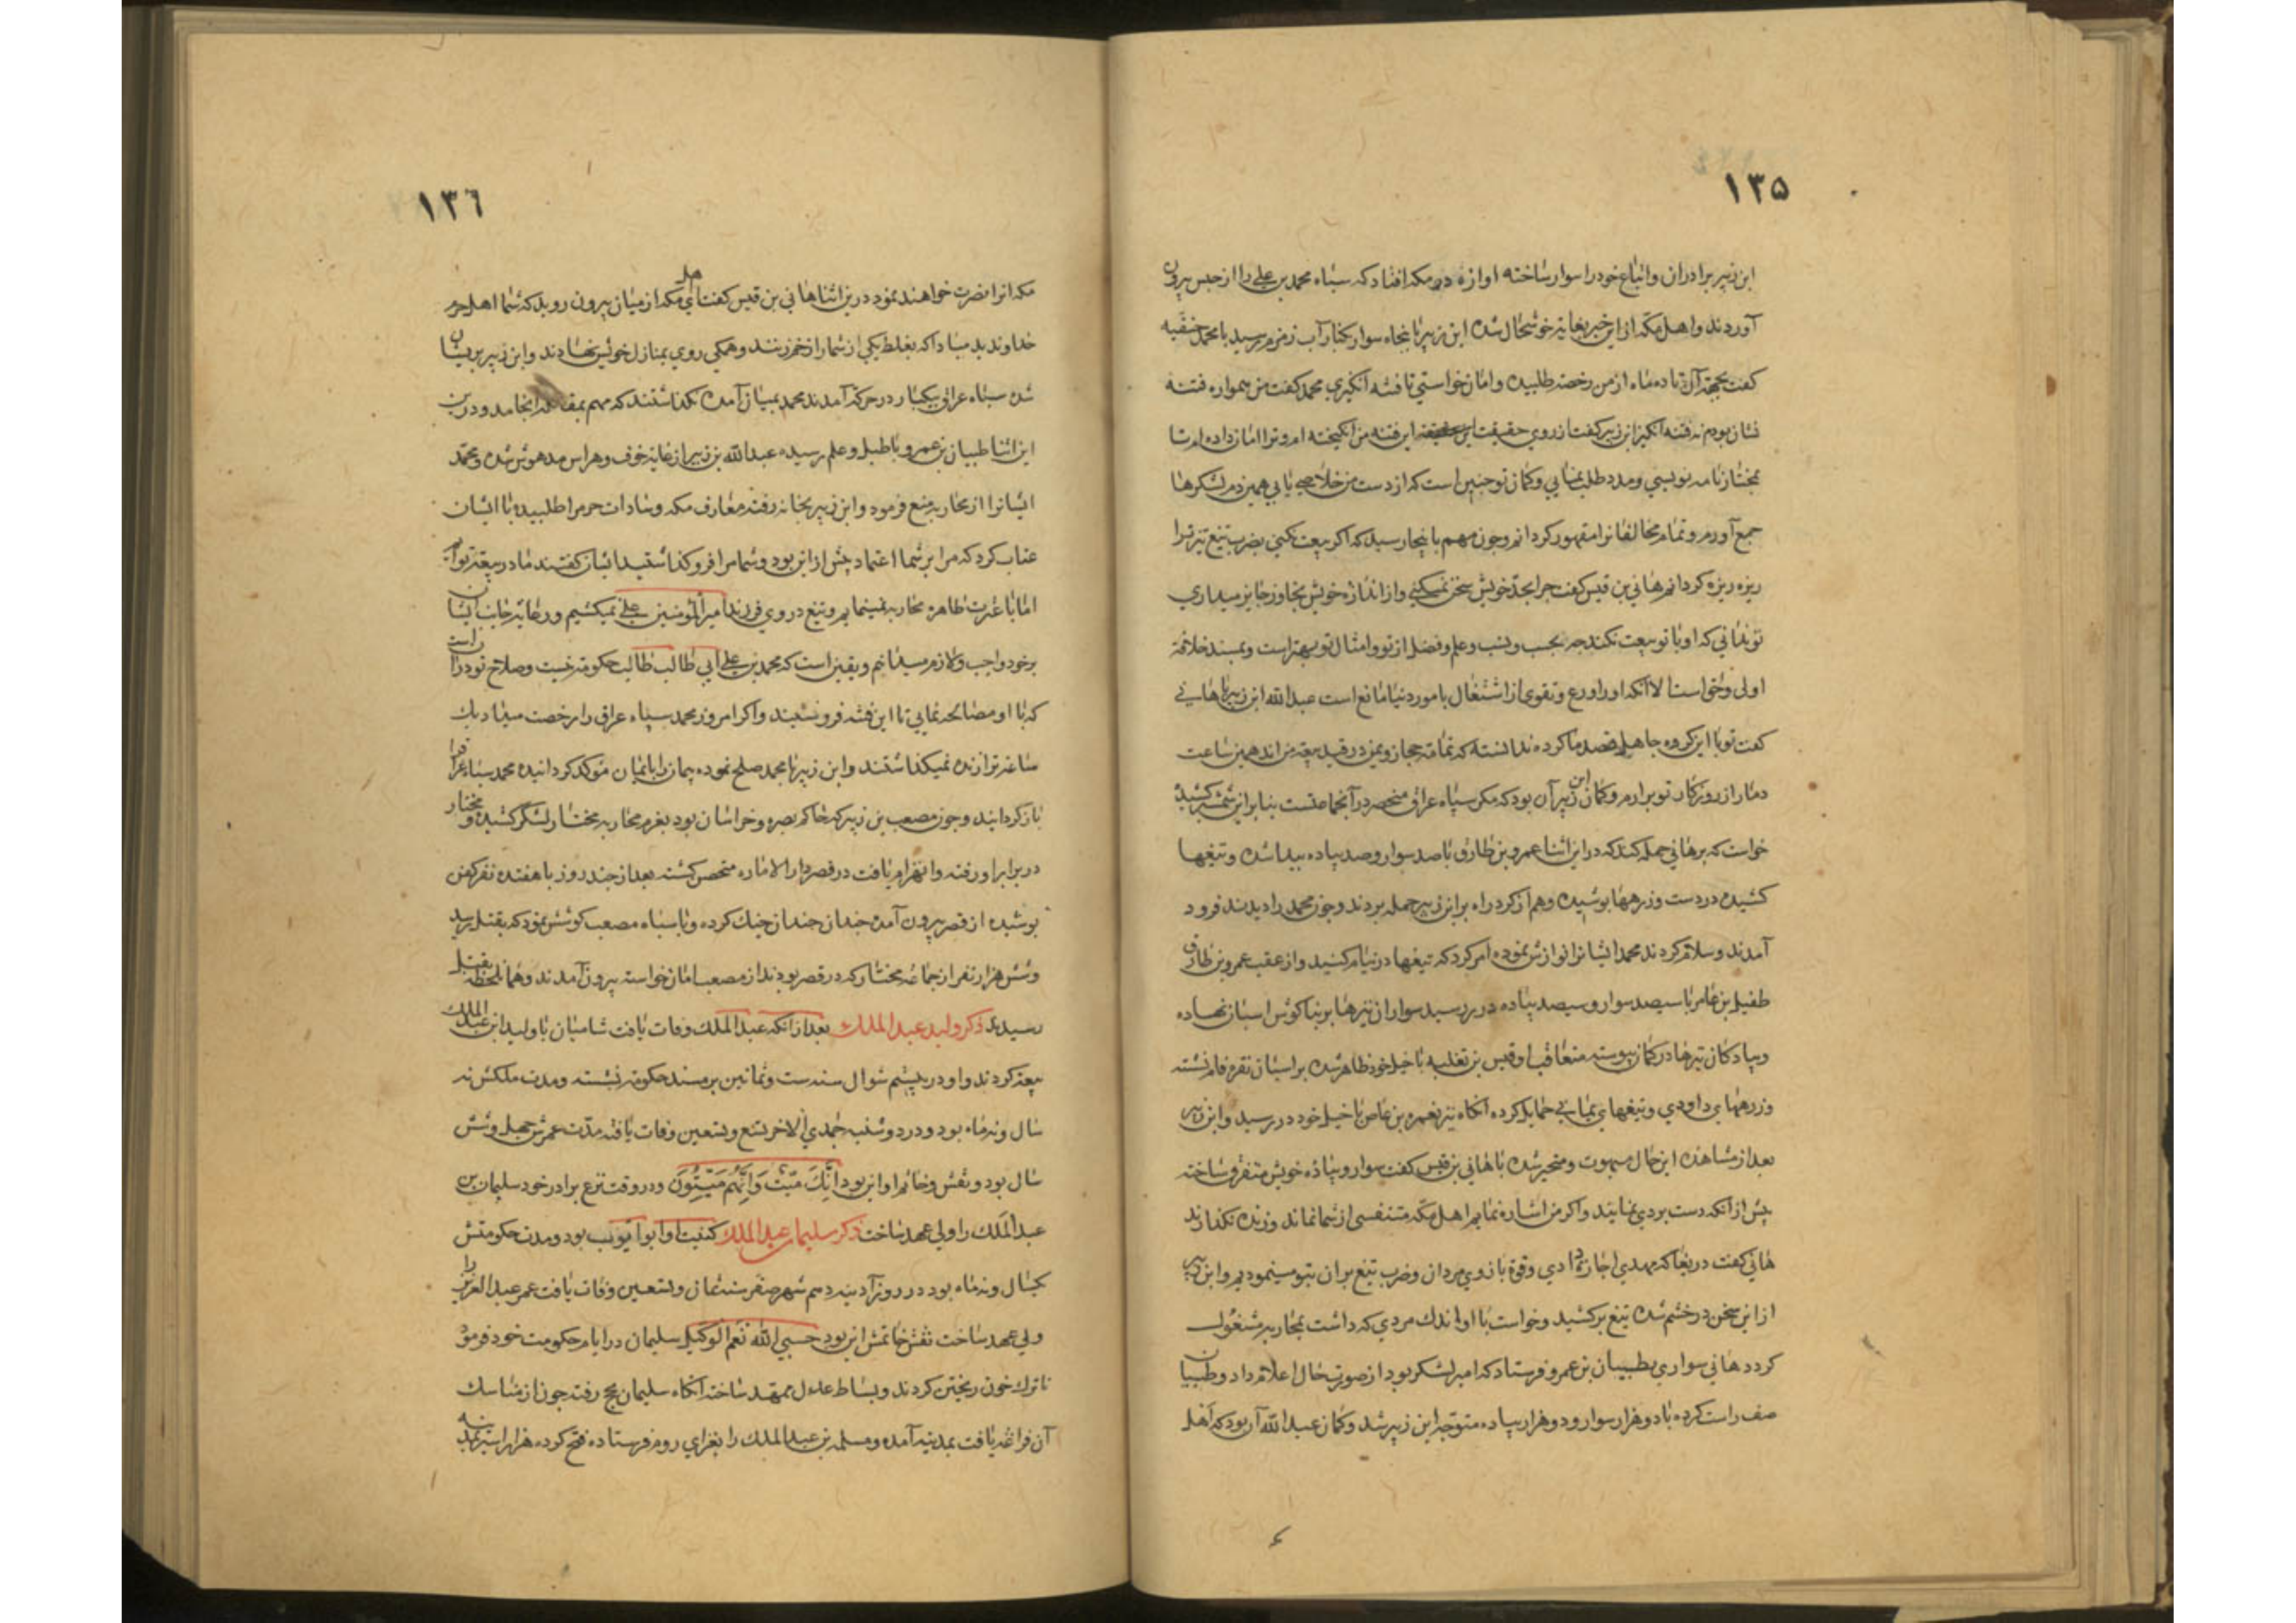 ۱۳۵
ابن زبیر برادران واتباع خود را سوار ساخته اوازه در مکه افتاد که سپاه محمد بن علی را از حبس بیرون
آوردند واهل مکه از این خبر بغایة خوشحال شده ابن زبیر با پنجاه سوار بکنار آب زمزم رسید با محمد حنفیه
کفت بجهة آن تا ده ماه از من رخصة طلبیده وامان خواستي تا فتنه انکیزي محمد کفت من همواره فتنه
نشان بودم نه فتنه انکیز ابن زبیر کفت از روي حقیقت این فتنه من انکیخته ام وترا امان داده ام تا
بمختار نامه نویسي ومدد طلب نمایي وکمان تو چنین است که از دست من خلاصي یابي همین دم لشکرها
جمع آورم وتمام مخالفانرا مقهور کردانم وچون مهم باینجا رسید که اکر بیعت نکني بضرب تیغ تیز ترا
ریزه ریزه کردانم هاني بن قیس کفت چرا بحدّ خویش سخن نمیکني واز اندازه خویش تجاوز جایز میداري
تو نداني که او با تو بیعت نکند چه بحسب ونسب وعلم وفضل از تو وامثال تو بهتر است وبمسند خلافة
اولی واحق است الا آنکه اورا ورع وتقوی از اشتغال بامور دنیا مانع است عبد الله ابن زبیر با هانی
کفت تو با این کروه جاهل قصد ما کرده ندانسته که تمامة حجاز ویمن در قید بیعة من اند همین ساعت
دمار از روزکار تو برارم وکمان ابن زبیر آن بود که مکر سپاه عراق منحصر در آنجماعتست بنا بر این شمشیر کشید
خواست که بر هاني حمله کند که در این اثنا عمرو بن طارق با صد سوار وصد پیاده پیدا شده وتیغها
کشیده در دست وزرهها پوشیده وهم از کرد راه بر ابن زبیر حمله بردند وچون محمد را دیدند فرود
آمدند وسلام کردند محمد ایشانرا نوازش نموده امر کرد که تیغها در نیام کنید واز عقب عمرو بن طارق
طفیل بن عامر با سیصد سوار وسیصد پیاده در رسید سواران نیزها بر بناکوش اسبان نهاده
وپیادکان تیرها در کمان پیوسته متعاقب او قیس بن تغلبه با خیل خود ظاهر شده بر اسبان نقره فام نشسته
وزرههاي داودي وتیغهاي یمانی حمایل کرده آنکاه نیز نعمره بن عاص با خیل خود در رسید وابن زبیر
بعد از مشاهده این حال مبهوت ومتحیر شده با هاني بن قیس کفت سوار وپیاده خویش متفرق ساخته
پیش از آنکه دست بردي نمایند واکر من اشاره نمایم اهل مکه متنفسی از شما نماند وزنده نکذارند
هاني کفت دریغا که مهدي اجازة دادي وقوة بازوي مردان وضرب تیغ بران بتو مینمودیم وابن زبیر
از این سخن در خشم شده تیغ برکشید وخواست با او اندک مردي که داشت بمحاربه مشغول
کردد هاني سواري بطبیان بن عمرو فرستاد که امیر لشکر بود از صورت حال اعلام داد وطبیان
صف راست کرده با دو هزار سوار ودو هزار پیاده متوجّه ابن زبیر شد وکمان عبد الله آن بود که اهل
۱۳٦
مکه انرا نصرت خواهند نمود در ین اثنا هاني بن قیس کفت اي اهل مکه از میان بیرون روید که شما اهل حرم
خداوندید مبادا که بغلط یکي از شما را زخم زنند وهمکي روي بمنازل خویش نهادند وابن زبیر پریشان
شده سپاه عراق بیکبار در حرکة آمدند محمد بمیان آمده نکذاشتند که مهم بمقاتله انجامد ودرین
این اثنا طبیان بن عمرو با طبل وعلم رسیده عبد الله بن زبیر از غایة خوف وهراس مدهوش شده ومحمد
ایشانرا از محاربه منع فرمود وابن زبیر بخانه رفته معارف مکه وسادات حرم را طلبیده با ایشان
عتاب کرد که مرا بر شما اعتماد بیش از این بود وشما مرا فروکذاشتید ایشان کفتند ما در بیعة توایم
اما با عترت طاهره محاربه نمینمایم وتیغ در روي فرزند امیر المومنین علي نمیکشیم ورعایة جانب ایشان
بر خود واجب ولازم میدانیم ویقین است که محمد بن علي ابي طالب طالب حکومة نیست وصلاح تو در آن است
که با او مصالحه نمایي تا این فتنه فرو نشیند واکر امروز محمد سپاه عراق را رخصت میداد یک
ساعة ترا زنده نمیکذاشتند وابن زبیر با محمد صلح نموده پیمانرا بایمان موکد کردانیده محمد سپاه عراق را
باز کردانید وچون مصعب بن زبیر که حاکم بصره وخراسان بود بعزم محاربه مختار لشکر کشیده ومختار
در برابر او رفته وانهزام یافت در قصر دار الاماره متحصن کشته بعد از چند روز با هفتده نفر کفن
پوشیده از قصر بیرون آمده چندان جنک کرده وبا سپاه مصعب کوشش نمود که بقتل رسید
وشش هزار نفر از جماعه مختار که در قصر بودند از مصعب امان خواسته بیرون آمدند وهمان لحظه بقتل
رسیدند ذکر ولید عبد الملک بعد از آنکه عبد الملک وفات یافت شامیان با ولید ابن عبد الملک
بیعة کردند واو در بیستم شوال سنه ست وثمانین بر مسند حکومة نشسته ومدت ملکش نه
سال ونه ماه بود ودر دوشنبه جمدي الاخر تسع وتسعین وفات یافته مدّت عمرش چهل وشش
سال بود ونقش وخاتم او این بود اِنَّكَ مَيِّتٌ وَاِنَّهُم مَيِّتُونَ ودر وقت نزع برادر خود سلیمان بن
عبد الملک را ولي عهد ساخت ذکر سلیمان عبد الملک کنیت او ابوا یوب بود ومدت حکومتش
یکسال ونه ماه بود در روز آدینه دهم شهر صفر سنه ثمان وتسعین وفات یافت عمر عبد العزیز را
ولي عهد ساخت نقش خاتمش این بود حسبي الله نعم الوکیل سلیمان در ایام حکومت خود فرمود
تا ترک خون ریختن کردند وبساط عدل ممهّد ساخته آنکاه سلیمان بحج رفت چون از مناسک
آن فراغة یافت بمدینه آمده ومسلمه بن عبد الملک را بغزاي روم فرستاده فتح کرده هزار